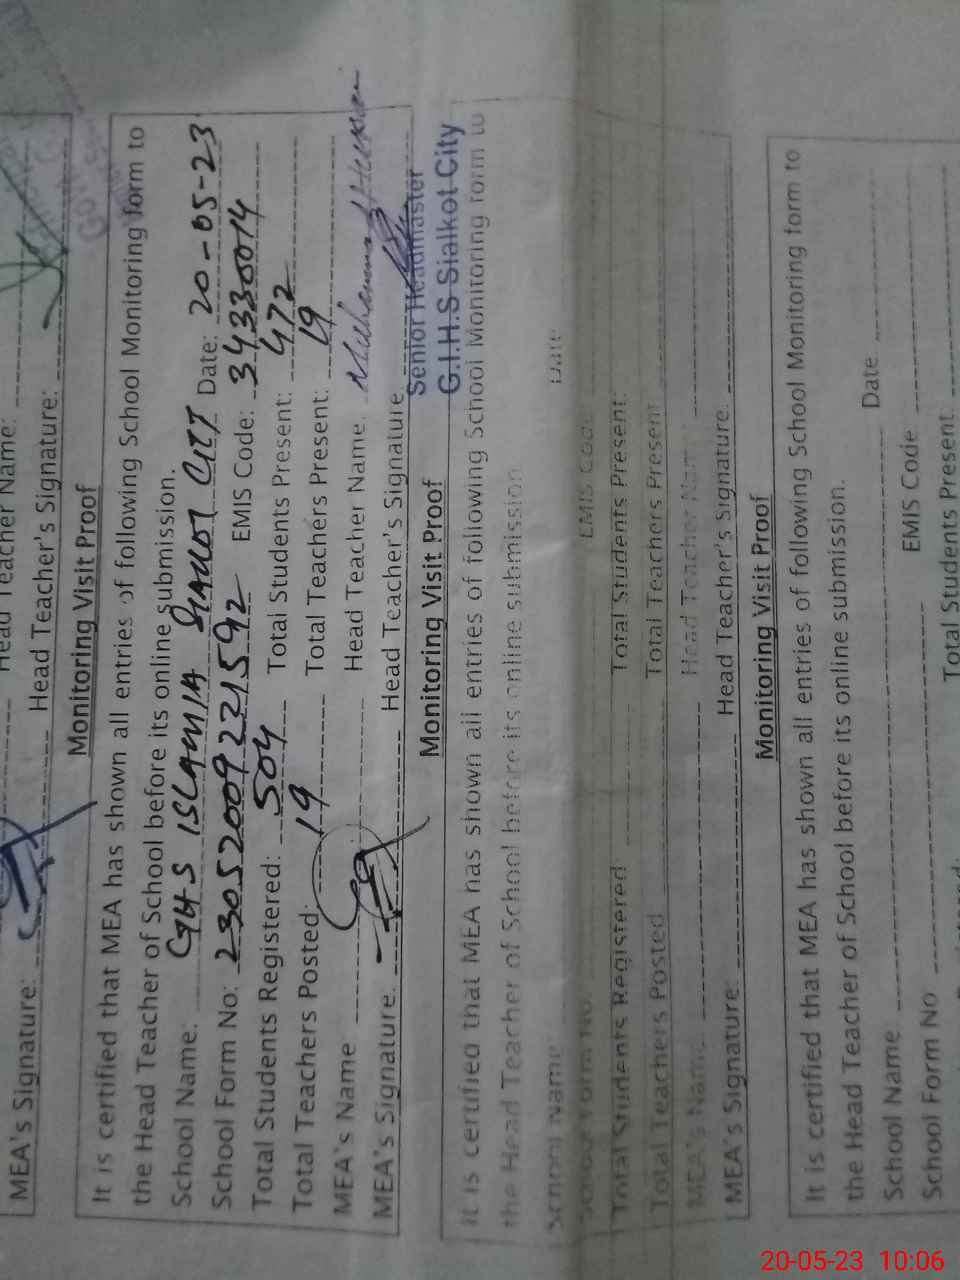 Head Teacher Name:
MEA's Signature: Head Teacher's Signature:
Monitoring Visit Proof
It is certified that MEA has shown all entries of following School Monitoring form to
the Head Teacher of School before its online submission.
School Name: GHS ISLAMIA SIALKOT CITY Date: 20-05-23
School Form No: 23052009221592 EMIS Code: 34330014
Total Students Registered: 504 Total Students Present: 472
Total Teachers Posted: 19 Total Teachers Present: 19
MEA's Name Head Teacher Name
MEA's Signature. Head Teacher's Signature
Senior Headmaster
G.I.H.S Sialkot City
Monitoring Visit Proof
It is certified that MEA has shown all entries of following School Monitoring form to
the Head Teacher of School before its online submission
School Name Date
School Form No EMIS Code
Total Students Registered Total Students Present:
Total Teachers Posted Total Teachers Present
MEA's Name Head Teacher Name
MEA's Signature Head Teacher's Signature
Monitoring Visit Proof
It is certified that MEA has shown all entries of following School Monitoring form to
the Head Teacher of School before its online submission.
School Name Date
School Form No EMIS Code
Total Students Present
20-05-23 10:06